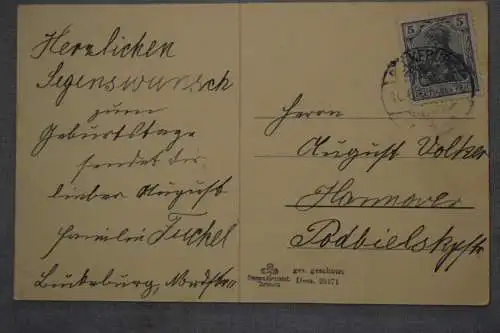 Herzlichen
Segenswunsch
zum
Geburtstage
sendet dir
lieber August
Familie Tuckel
Bückeburg, Nordstr.
5
BÜCKEBURG
Herrn
August Volker
Hannover
Podbielskystr
ges. geschützt
Dess.